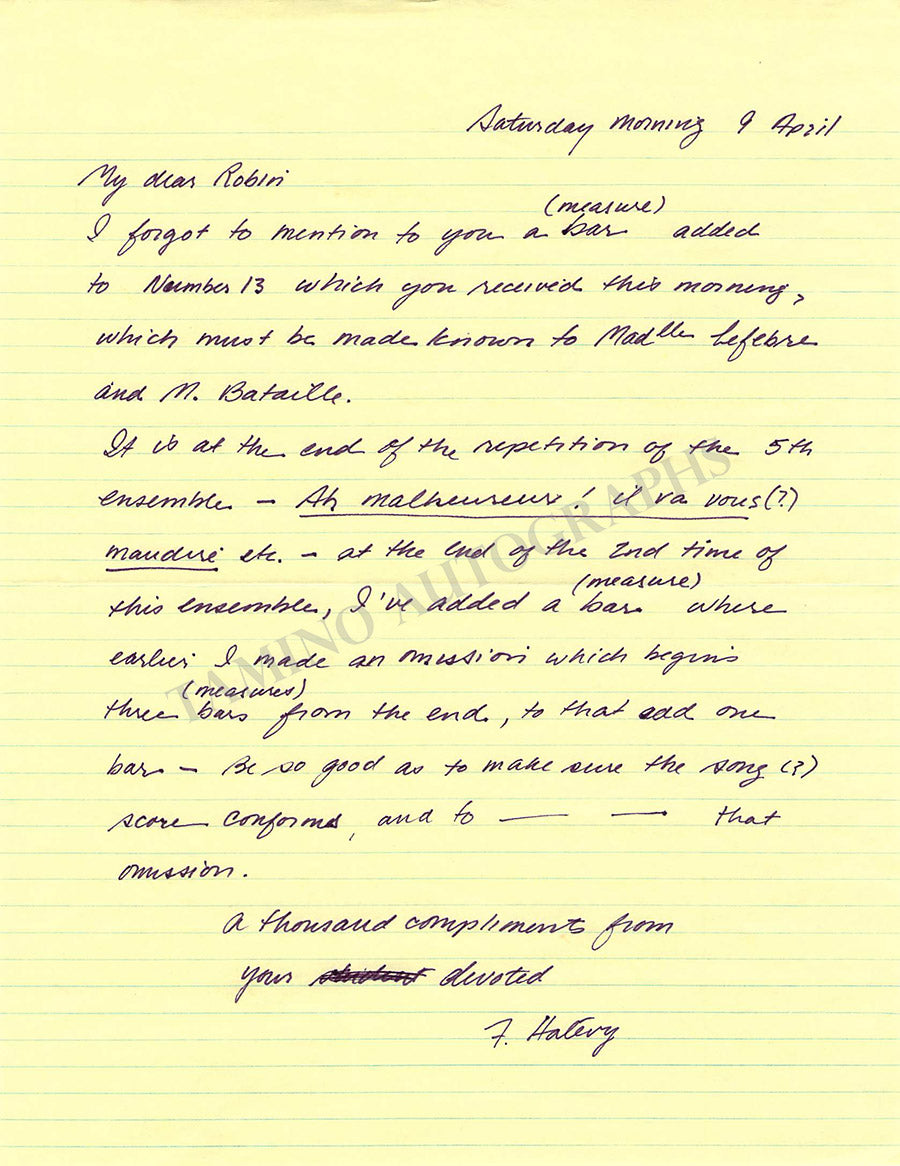 Saturday morning 9 April
My dear Robin
(measure)
I forgot to mention to you a bar added
to Number 13 which you received this morning,
which must be made known to Madlle Lefebre
and M. Bataille.
It is at the end of the repetition of the 5th
ensemble – Ah malheureux! il va vous(?)
maudire etc. – at the end of the 2nd time of
(measure)
this ensemble, I've added a bar where
earlier I made an omission which begins
(measures)
three bars from the end, to that add one
bar – Be so good as to make sure the song (?)
score conforms, and to — — that
omission.
A thousand compliments from
your devoted
F. Halévy
TAMINO AUTOGRAPHS